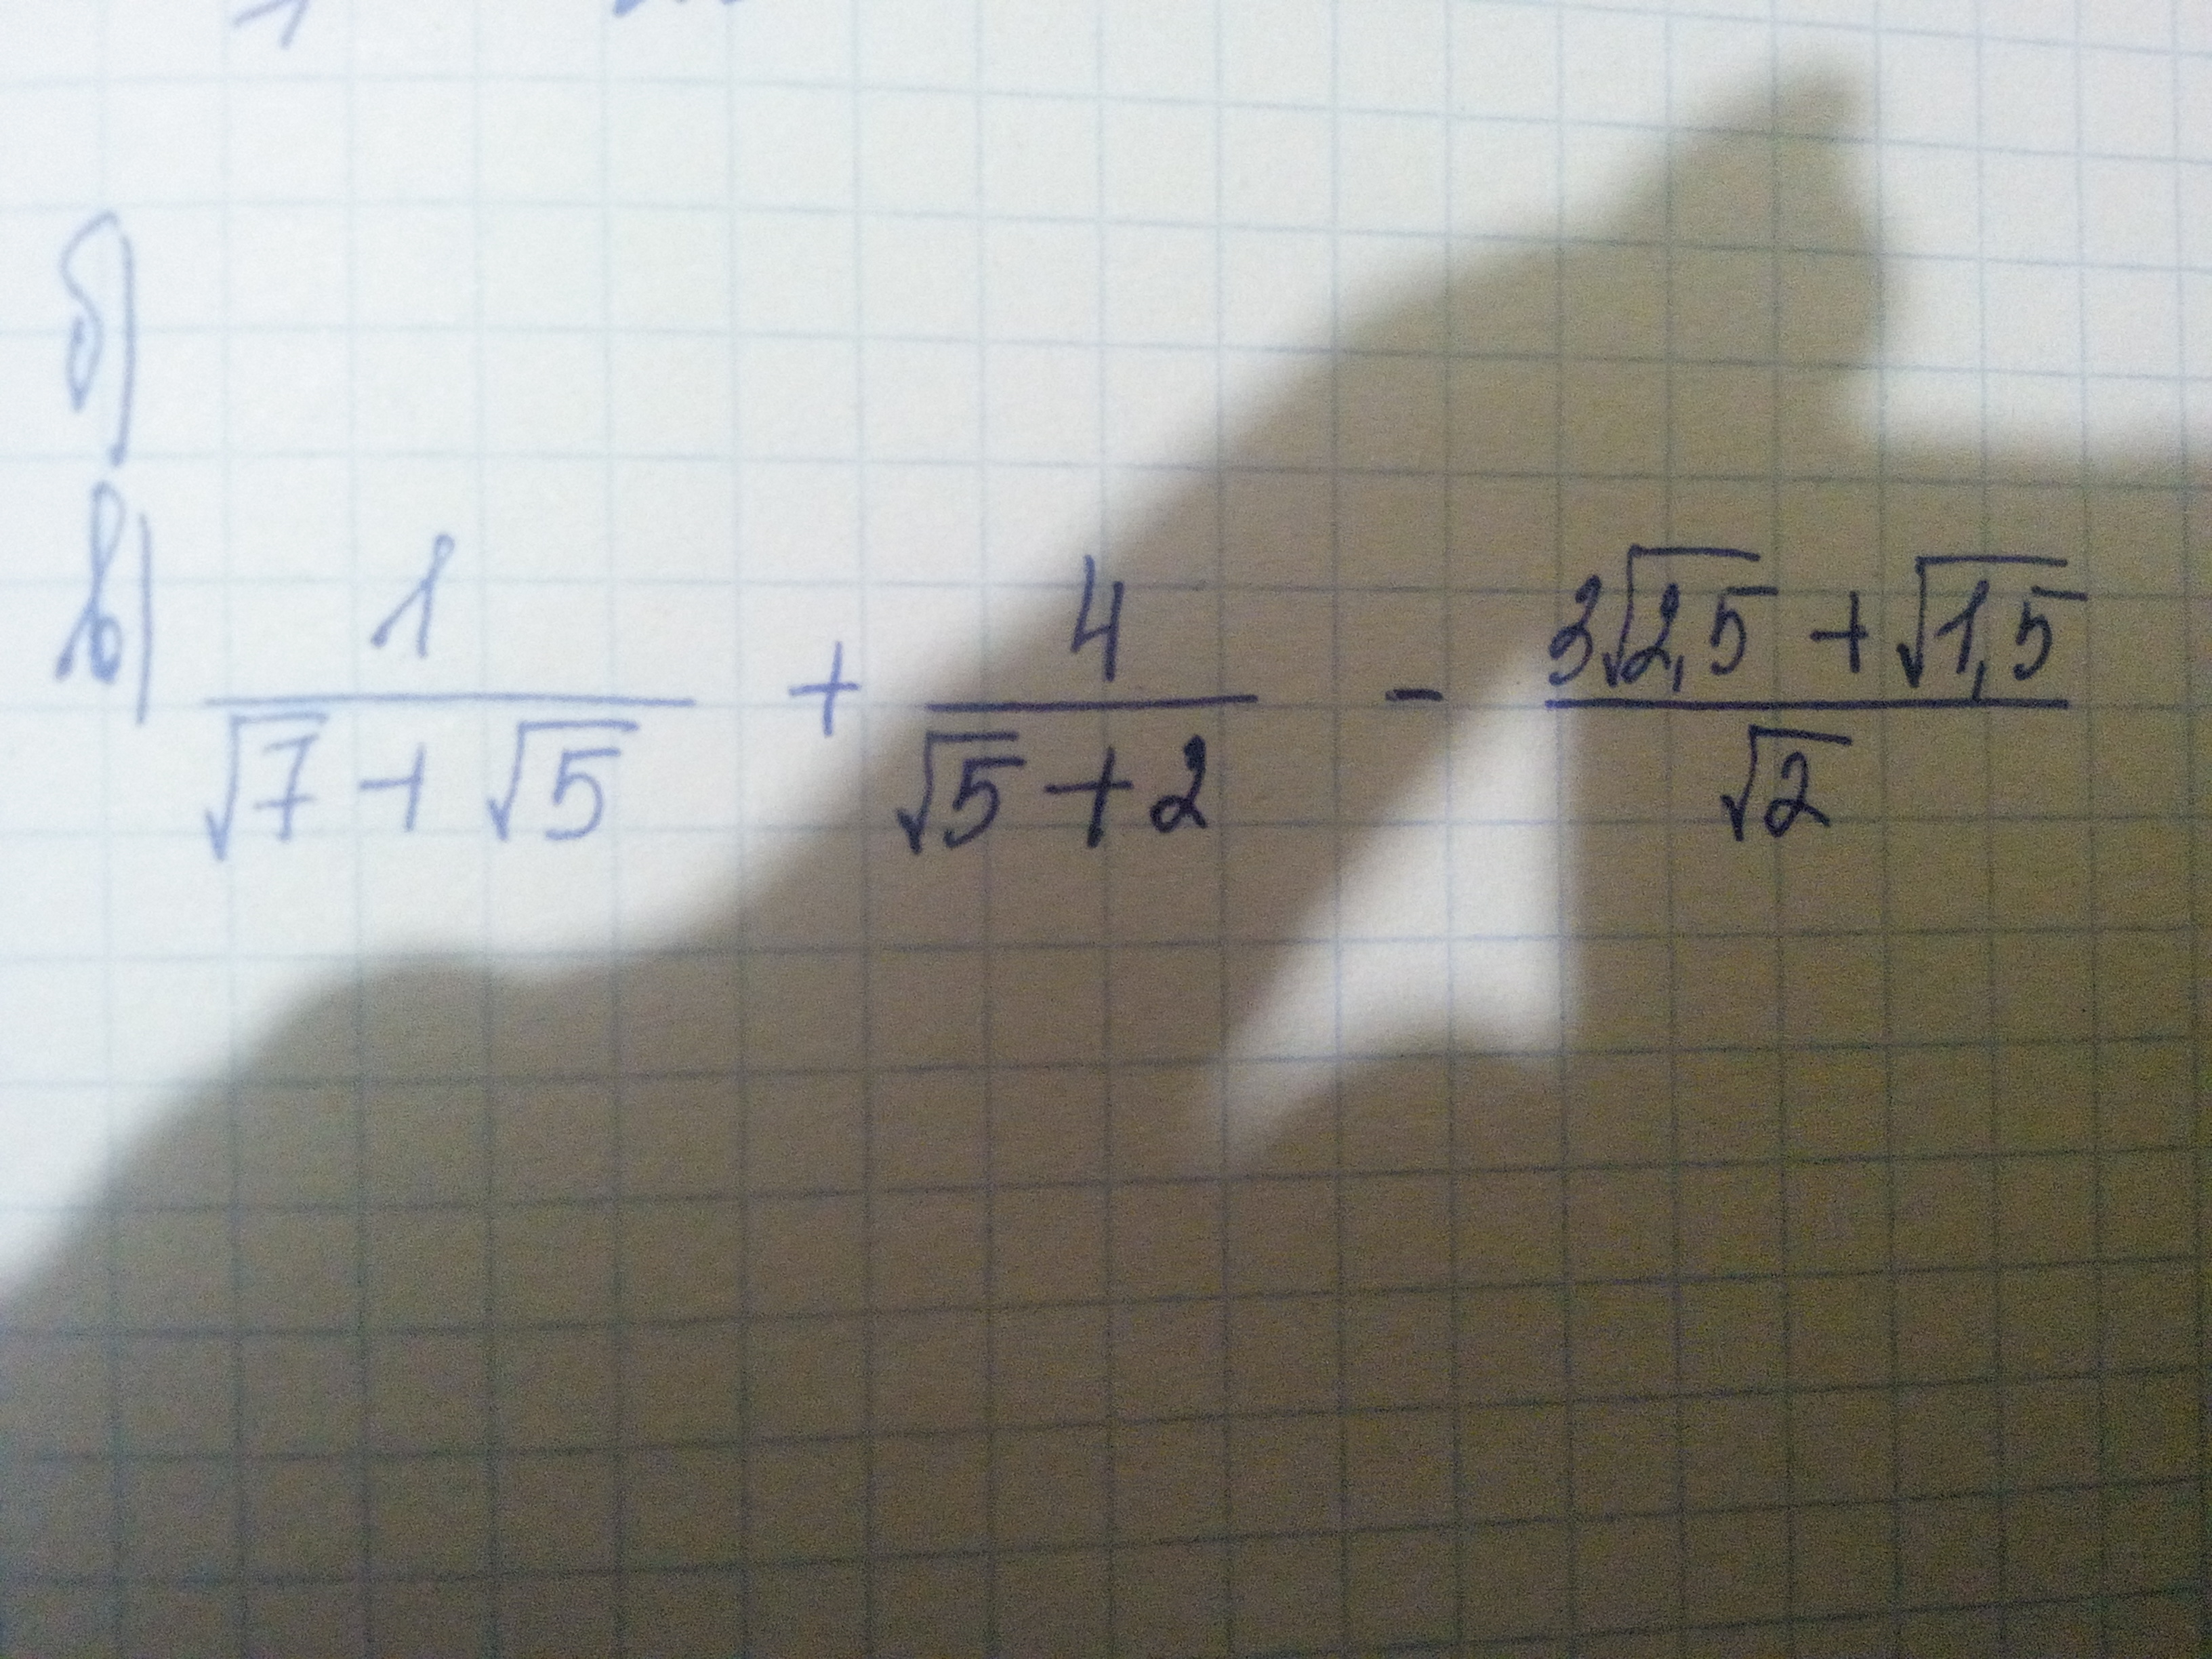 б)
в) 1/(√7 + √5) + 4/(√5 + 2) - (3√2,5 + √1,5)/√2